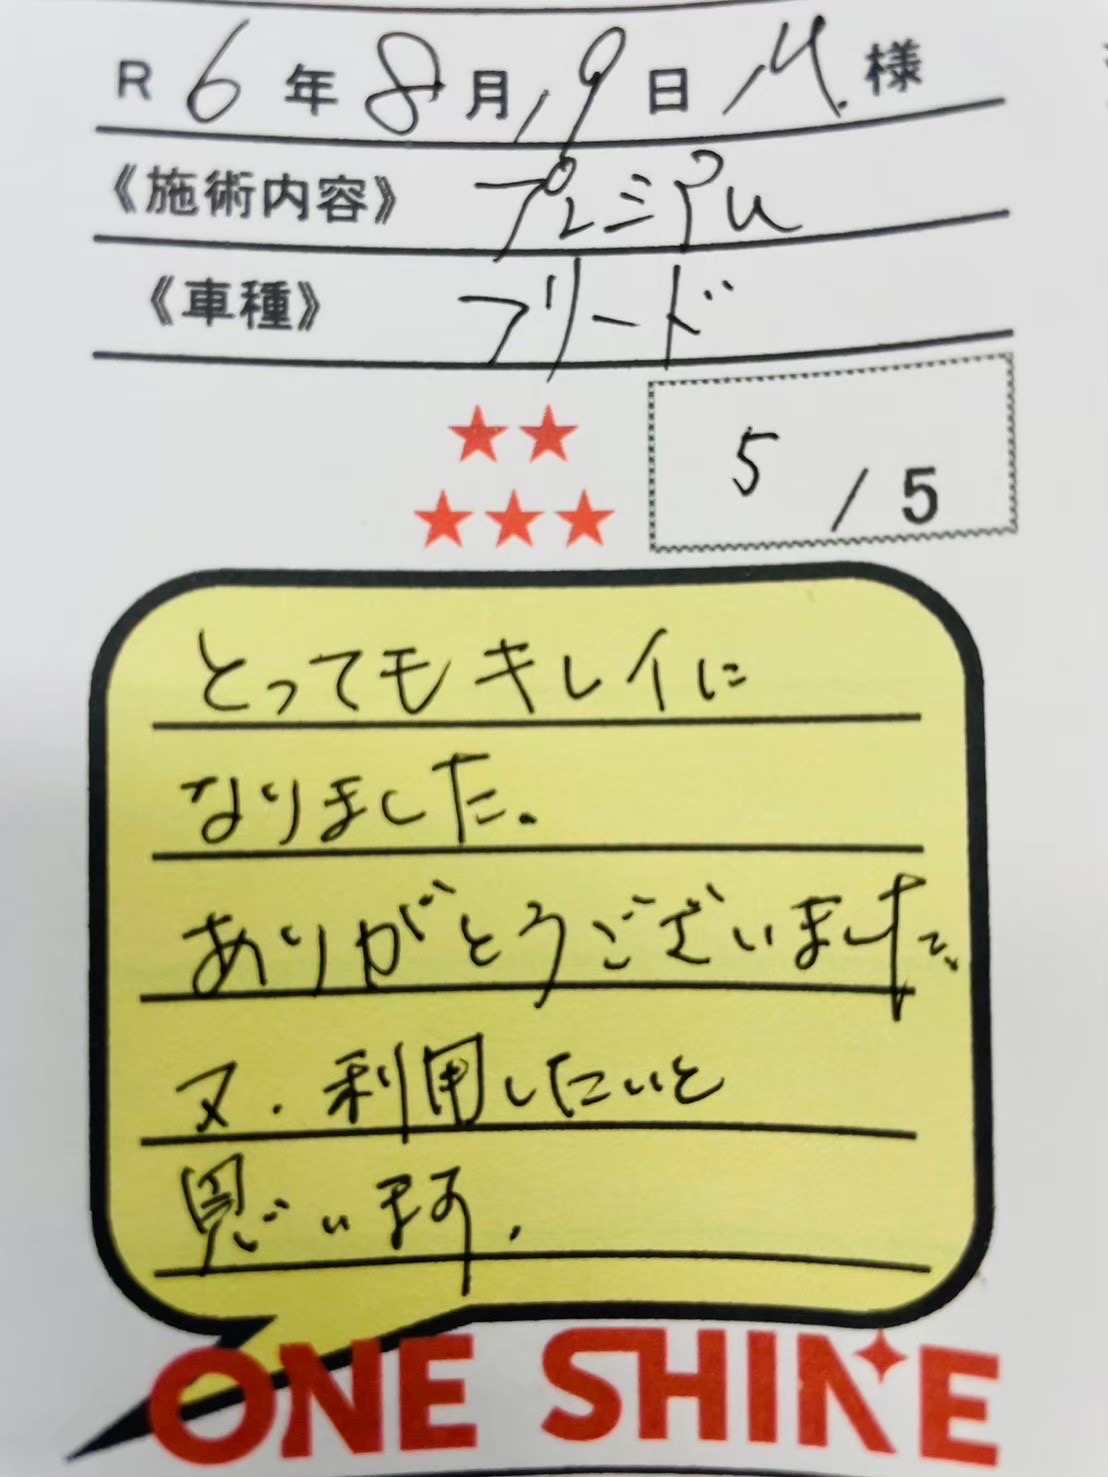 R 6年 8月 19日 M.様
《施術内容》 プレミアム
《車種》 フリード
5 / 5
とってもキレイに
なりました。
ありがとうございました。
又、利用したいと
思います。
ONE SHINE